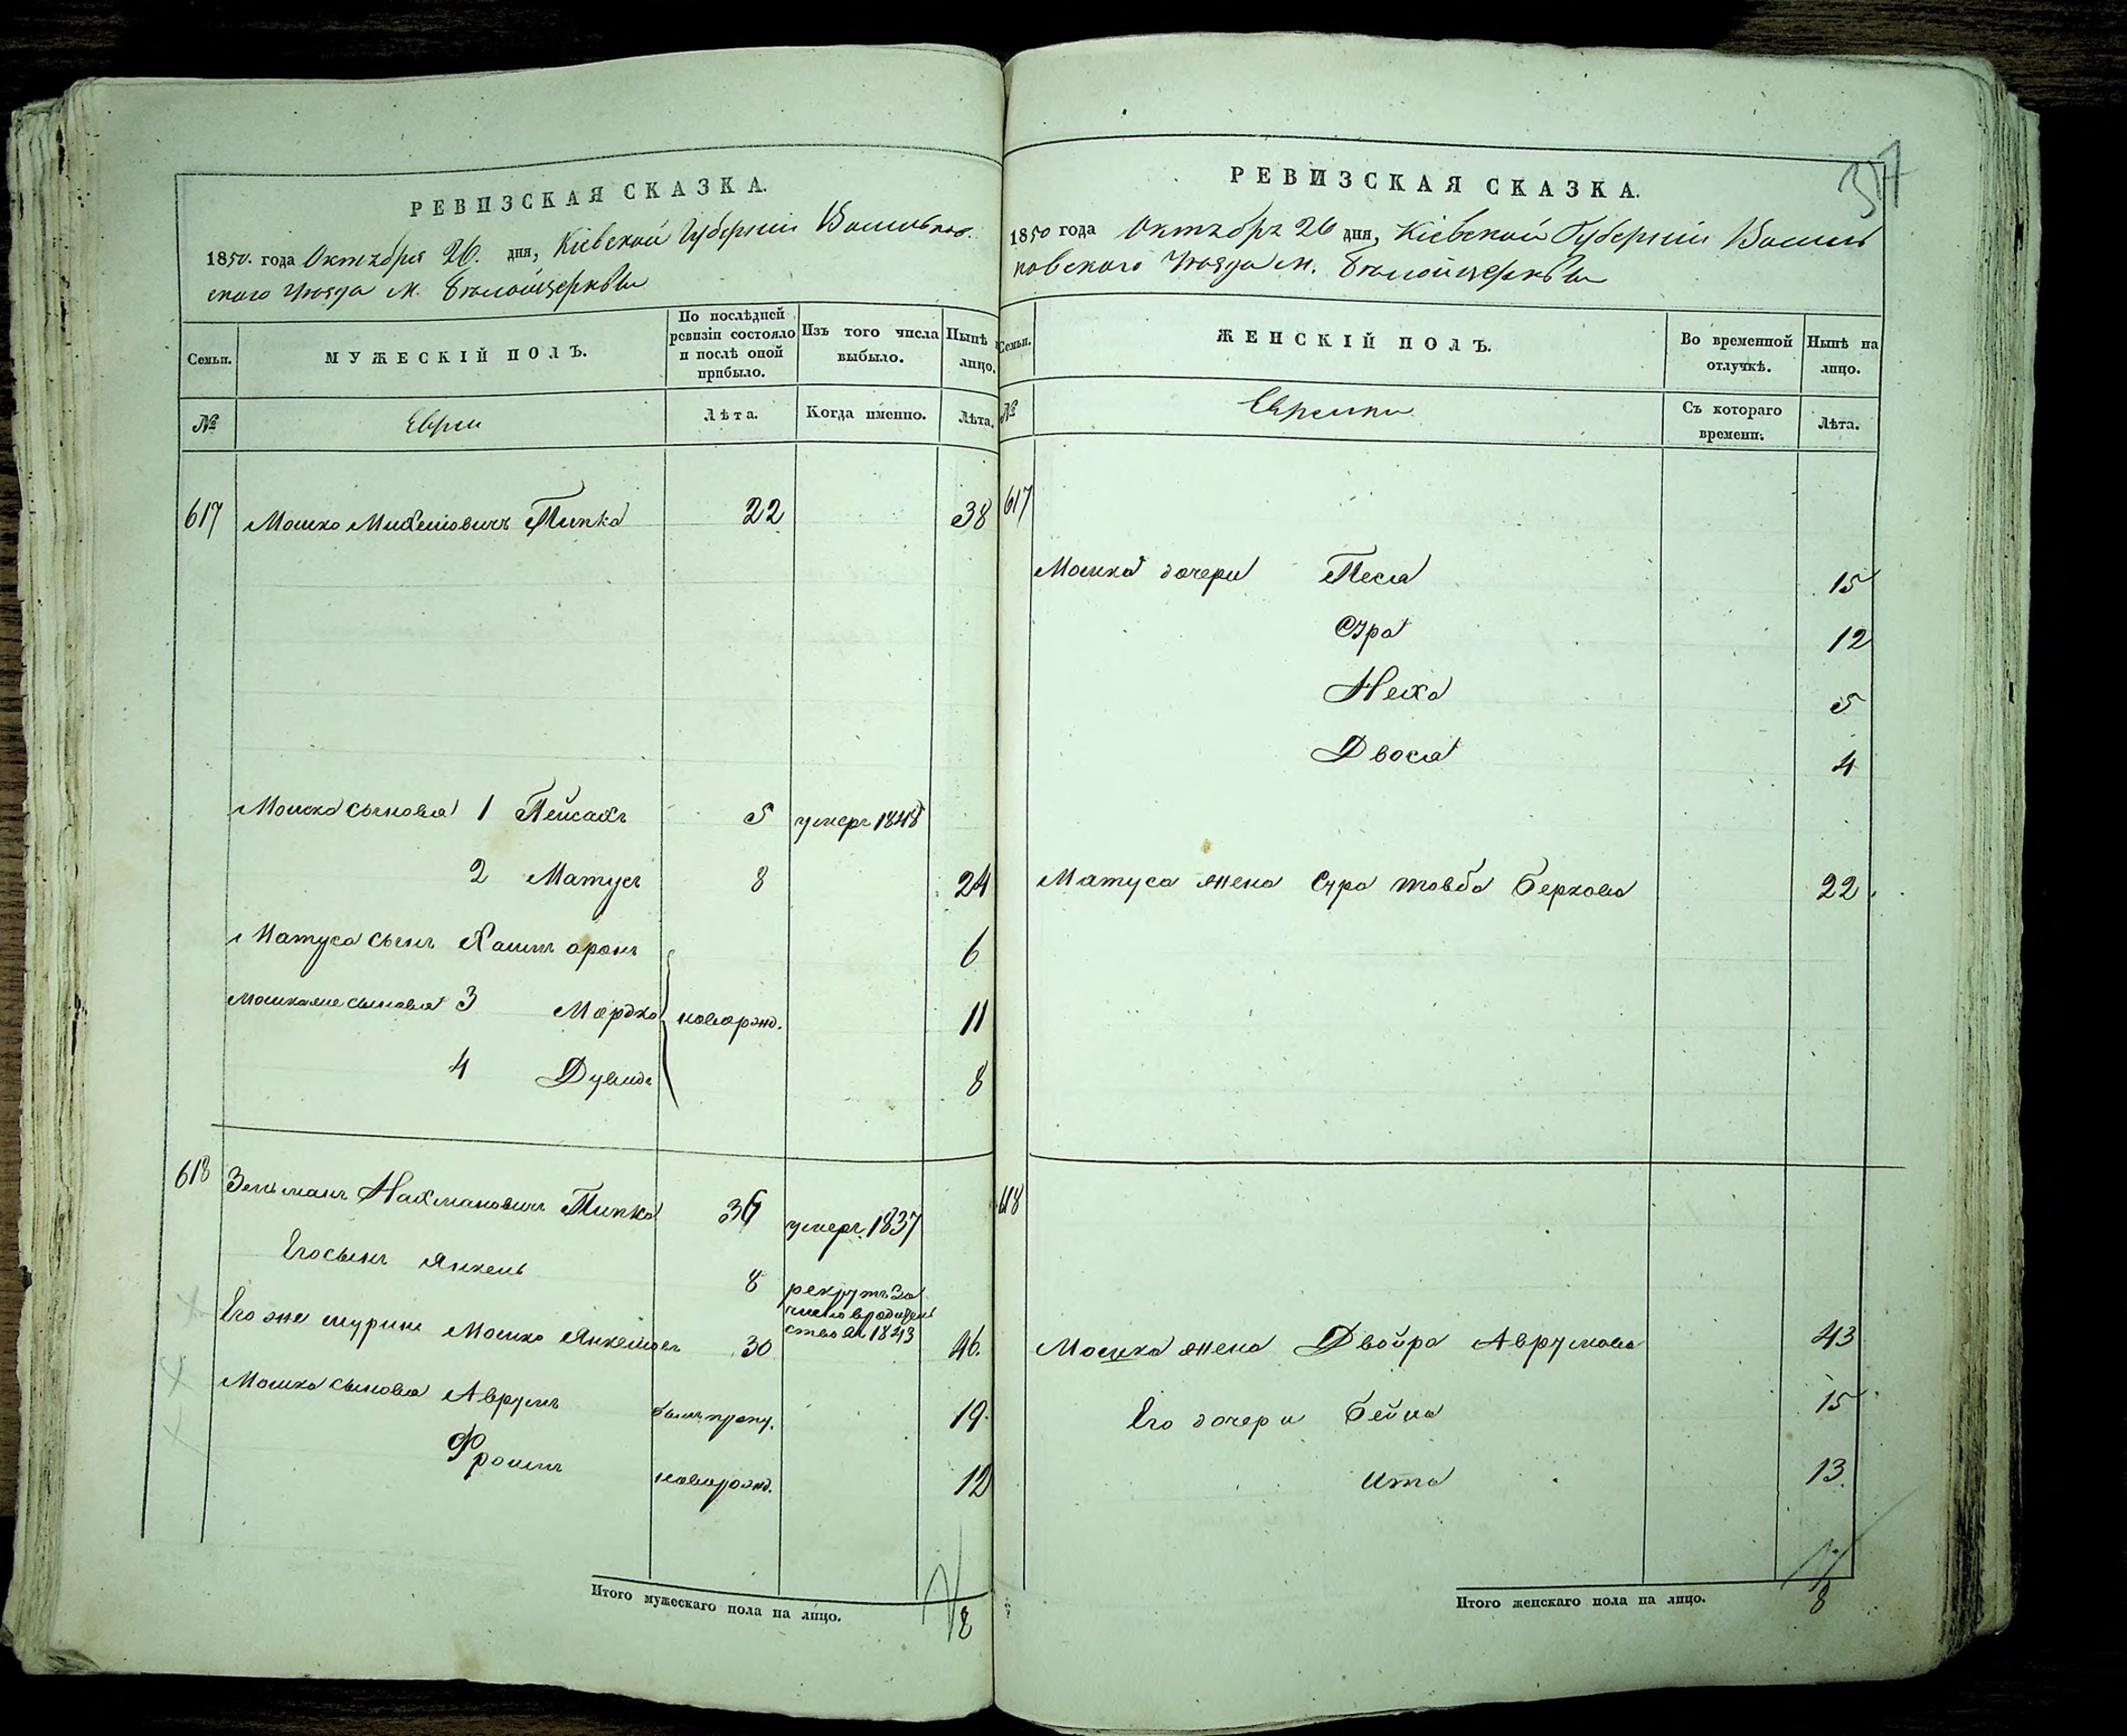 РЕВИЗСКАЯ СКАЗКА.
1850. года Октября 26. дня, Кіевской Губерніи Васильков-
скаго Уѣзда М. Бѣлойцеркви
Семьи.
МУЖЕСКІЙ ПОЛЪ.
По послѣдней ревизіи состояло и послѣ оной прибыло.
Изъ того числа выбыло.
Нынѣ лицо.
№
Евреи
Лѣта.
Когда именно.
Лѣта.
617 Мошко Михелiовичъ Пипка 22 38
Мошка сыновья 1 Пейсахъ 5 умеръ 1848
2 Матусъ 8 24
Матуса сынъ Хаимъ аронъ 6
Мошка же сыновья 3 Мордко новорожд. 11
4 Дувидъ 8
618 Зельманъ Нахмановичъ Пипка 36 умеръ 1837
Его сынъ Янкель 8 рекрутъ за
1843
Его же шуринъ Мошко Янкелiовъ 30 46.
Мошка сыновья Аврумъ былъ пропу. 19.
Фроимъ новорожд. 12
Итого мужескаго пола на лицо.
8
317
РЕВИЗСКАЯ СКАЗКА.
1850 года Октября 26 дня, Кіевской Губерніи Василь
ковскаго Уѣзда м. Бѣлойцеркви
Семьи.
ЖЕНСКІЙ ПОЛЪ.
Во временной отлучкѣ.
Нынѣ на лицо.
№
Еврейки
Съ котораго времени.
Лѣта.
617
Мошка дочери Песя 15
Сура 12
Неха 5
Двося 4
Матуса жена Сура товба Беркова 22.
618
Мошка жена Двойра Аврумова 43
Его дочери Бейла 15
Ита 13.
Итого женскаго пола на лицо.
8